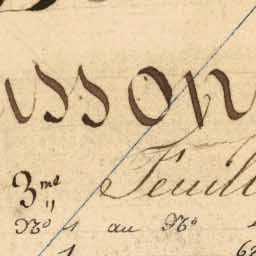 usson
3me Feuill
No 1 au No